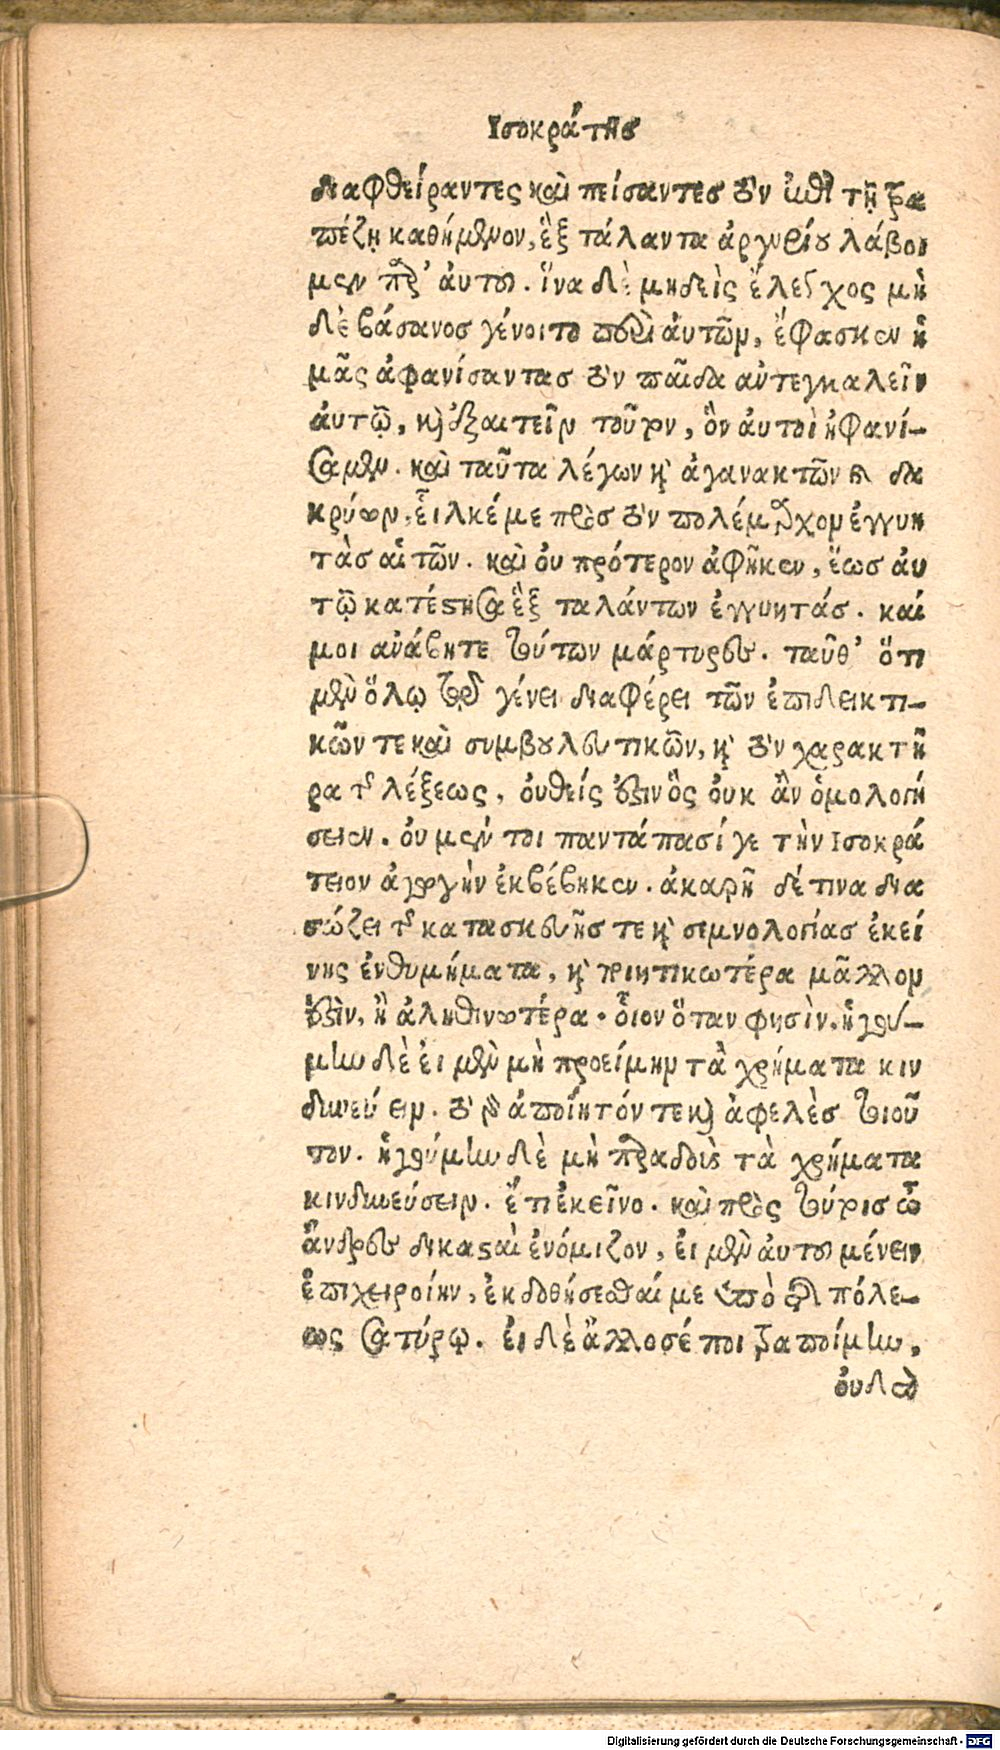 Ισοκράτης
διαφθείραντες καὶ πείσαντες τὸν ἐπὶ τῇ τρα
πέζῃ καθήμενον, ἓξ τάλαντα ἀργυρίου λάβοι
μεν παρ' ἀυτου. ἵνα δὲ μηδεὶς ἔλεγχος μὴ
δὲ βάσανος γένοιτο περὶ ἀυτῶν, ἔφασκεν ἡ
μᾶς ἀφανίσαντας τὸν παῖδα ἀντεγκαλεῖν
ἀυτῷ, καὶ ἐξαιτεῖν τοῦτον, ὃν ἀυτοὶ ἠφανί-
σαμεν. καὶ ταῦτα λέγων καὶ ἀγανακτῶν καὶ δα
κρύων, εἷλκέ με πρὸς τὸν πολέμαρχον ἐγγυη
τὰς αἰτῶν. καὶ ὀυ πρότερον ἀφῆκεν, ἕως ἀυ
τῷ κατέστησα ἓξ ταλάντων ἐγγυητάς. καί
μοι ἀνάβητε τούτων μάρτυρες. ταῦθ' ὅτι
μὲν ὅλῳ τῷ γένει διαφέρει τῶν ἐπιδεικτι-
κῶν τε καὶ συμβουλευτικῶν, καὶ τὸν χαρακτῆ
ρα τῆς λέξεως, ὀυθείς ἐστιν ὃς ὀυκ ἂν ὁμολογή
σειεν. ὀυ μέν τοι παντάπασί γε τὴν Ισοκρά
τειον ἀγωγὴν ἐκβέβηκεν. ἀκαρῆ δέ τινα δια
σώζει τῆς κατασκευῆς τε καὶ σεμνολογίας ἐκεί
νης ἐνθυμήματα, καὶ ποιητικωτέρα μᾶλλον
ἐστὶν, ἢ ἀληθινωτέρα. οἷον ὅταν φησὶν. ἡγού-
μην δὲ ἐι μὲν μὴ προείμην τὰ χρήματα κιν
δυνεύειν. τὸ γὰρ ἀποίητόν τε καὶ ἀφελὲς τοιοῦ
τον. ἡγούμην δὲ μὴ παραδοὺς τὰ χρήματα
κινδυνεύσειν. ἔτι ἐκεῖνο. καὶ πρὸς τούτοις ὦ
ἄνδρες δικασταὶ ἐνόμιζον, ἐι μὲν ἀυτου μένειν
ἐπιχειροίην, ἐκδοθήσεσθαί με ὑπὸ τῆς πόλε-
ως Σατύρῳ. ἐι δὲ ἄλλοσέ ποι τραποίμην,
ὀυδὲν
Digitalisierung gefördert durch die Deutsche Forschungsgemeinschaft - DFG